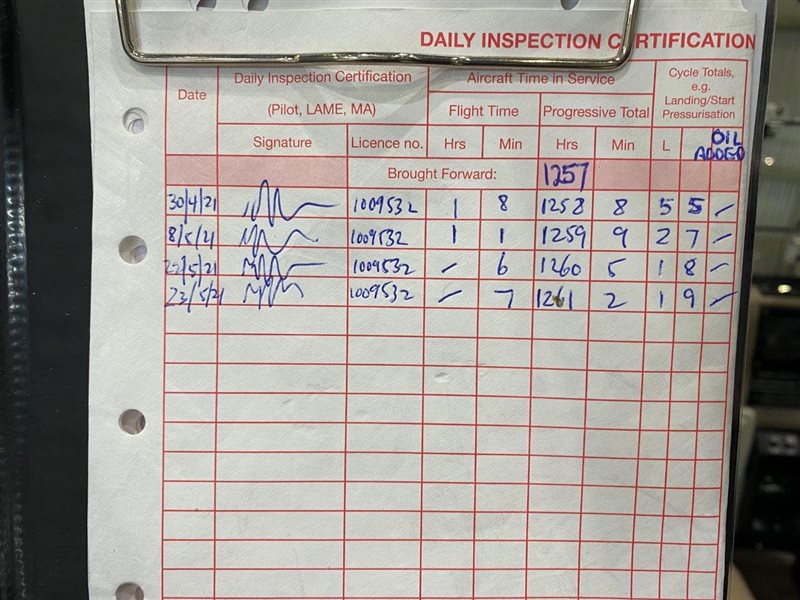 DAILY INSPECTION CERTIFICATION
Date Daily Inspection Certification (Pilot, LAME, MA) Aircraft Time in Service Cycle Totals, e.g. Landing/Start Pressurisation
Flight Time Progressive Total
Signature Licence no. Hrs Min Hrs Min L OIL ADDED
Brought Forward: 1257
30/4/21 1009532 1 8 1258 8 5 5 –
8/5/21 1009532 1 1 1259 9 2 7 –
22/5/21 1009532 – 6 1260 5 1 8 –
23/5/21 1009532 – 7 1261 2 1 9 –